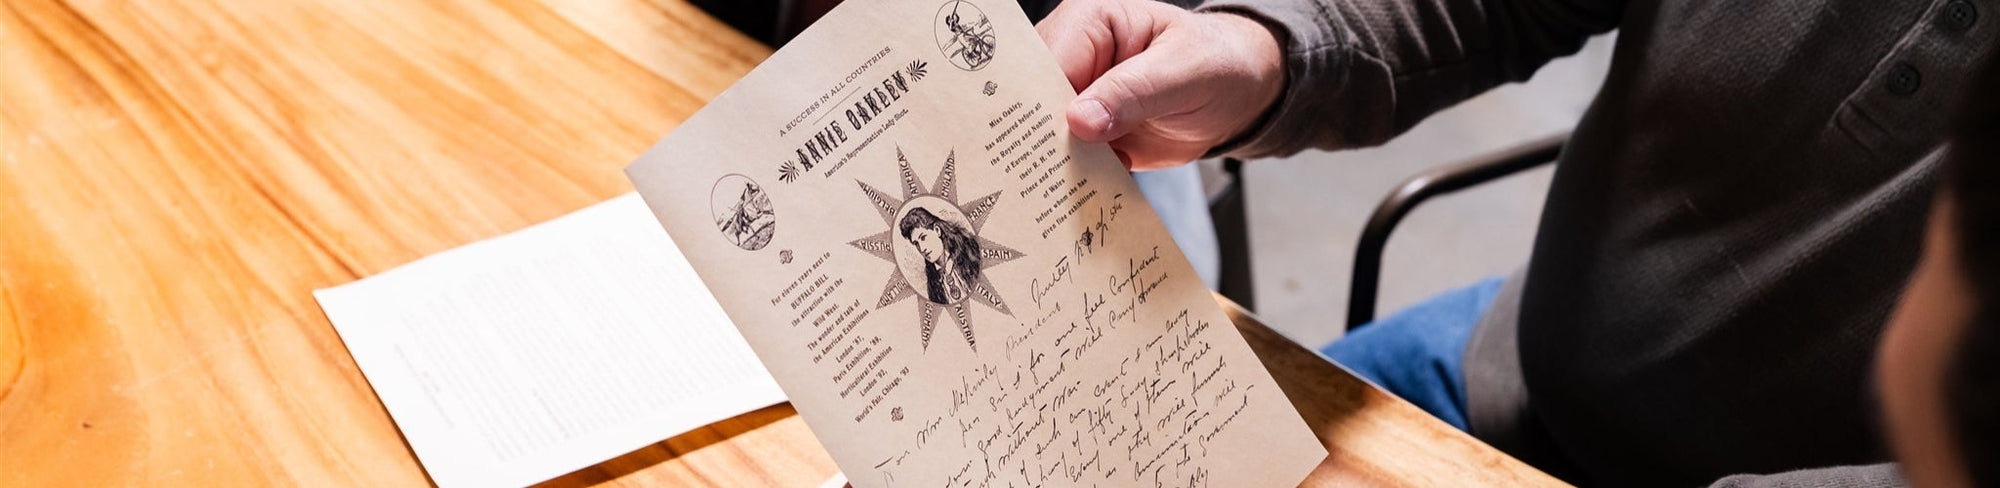 A SUCCESS IN ALL COUNTRIES.
ANNIE OAKLEY
America's Representative Lady Shot.
Miss Oakley,
has appeared before all
the Royalty and Nobility
of Europe, including
their R. H. the
Prince and Princess
of Wales
before whom she has
given five exhibitions.
AMERICA
ENGLAND
FRANCE
SPAIN
ITALY
AUSTRIA
GERMANY
HOLLAND
RUSSIA
BELGIUM
For eleven years next to
BUFFALO BILL
the attraction with the
Wild West.
The wonder and talk of
the American Exhibitions
London '87,
Paris Exhibition, '89,
Horticultural Exhibition
London '92,
World's Fair, Chicago, '93
Nutley
Hon Wm McKinley President
Dear Sir I for one feel Confident
your good judgment will carry America
without War
of such an event I am ready
of fifty lady sharpshooters
Every one of them will
as they will furnish
ammunition will
to the Government